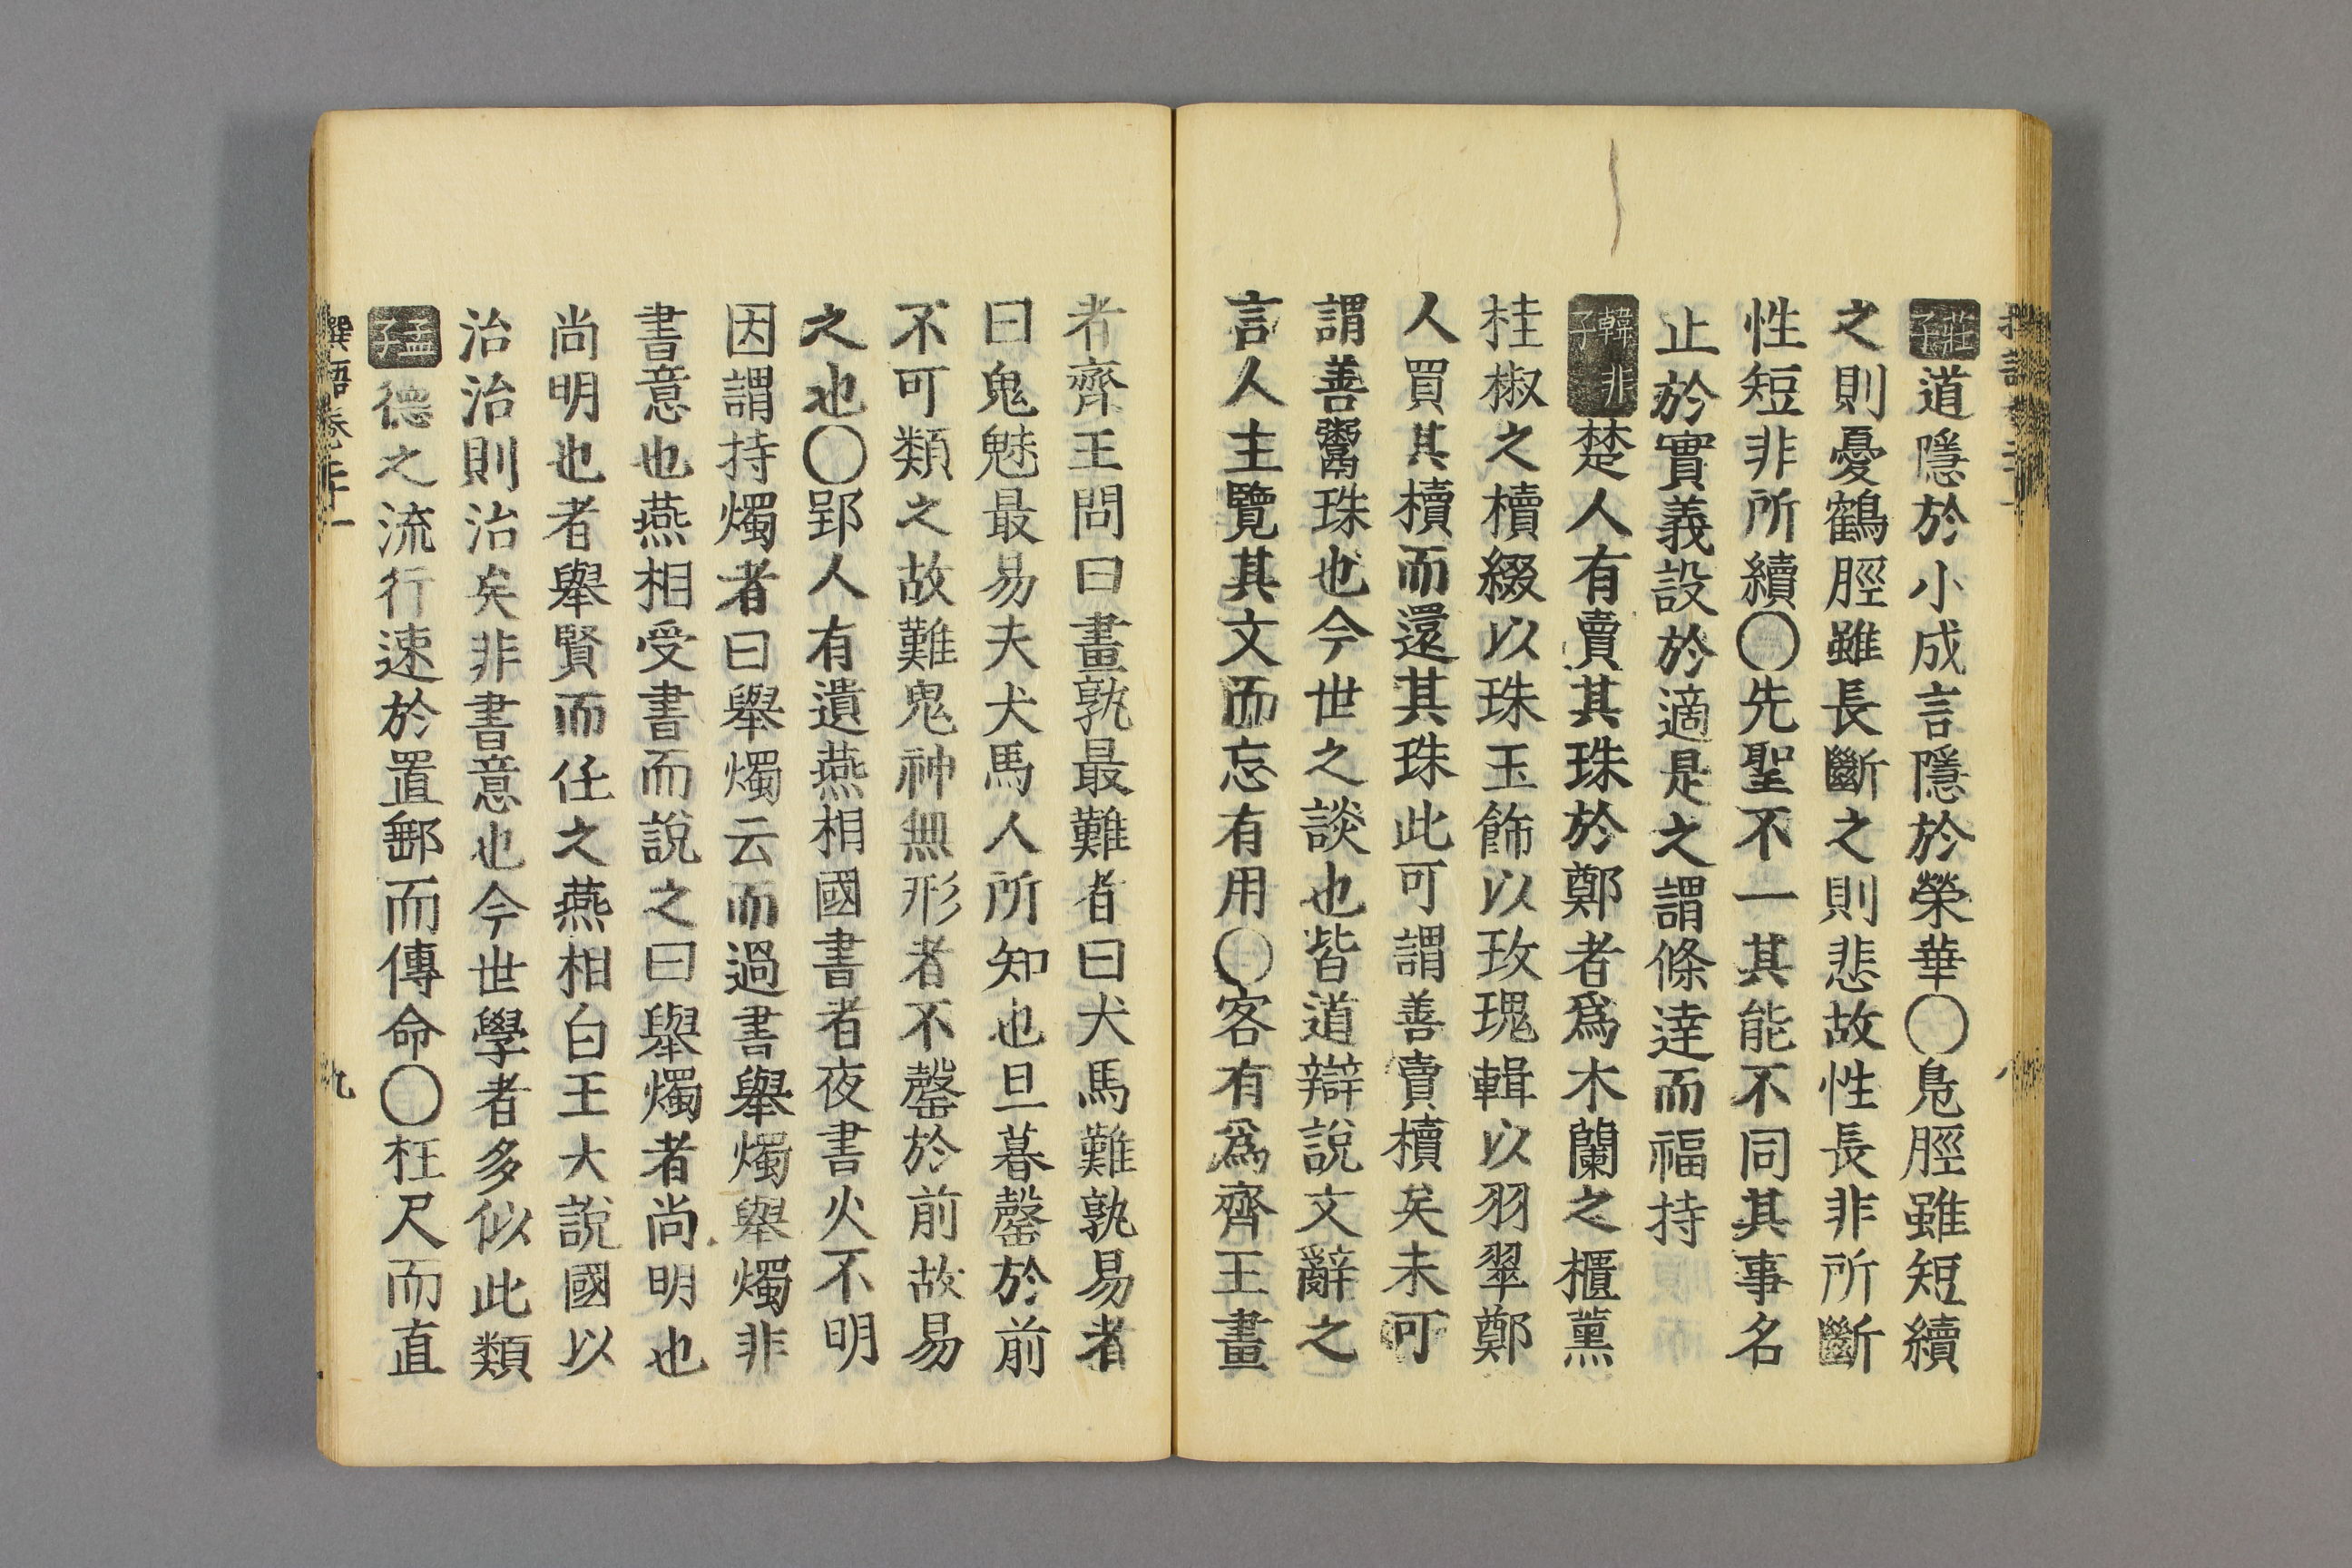 莊子道隱於小成言隱於榮華〇鳬脛雖短續
之則憂鶴脛雖長斷之則悲故性長非所斷
性短非所續〇先聖不一其能不同其事名
止於實義設於適是之謂條達而福持
韓非子楚人有賣其珠於鄭者爲木蘭之櫃薰
桂椒之櫝綴以珠玉飾以玫瑰輯以羽翠鄭
人買其櫝而還其珠此可謂善賣櫝矣未可
謂善鬻珠也今世之談也皆道辯說文辭之
言人主覽其文而忘有用〇客有爲齊王畫
者齊王問曰畫孰最難者曰犬馬難孰易者
曰鬼魅最易夫犬馬人所知也旦暮罄於前
不可類之故難鬼神無形者不罄於前故易
之也〇郢人有遺燕相國書者夜書火不明
因謂持燭者曰舉燭云而過書舉燭舉燭非
書意也燕相受書而說之曰舉燭者尚明也
尚明也者舉賢而任之燕相白王大說國以
治治則治矣非書意也今世學者多似此類
孟子德之流行速於置郵而傳命〇枉尺而直
撰語卷二十一 九